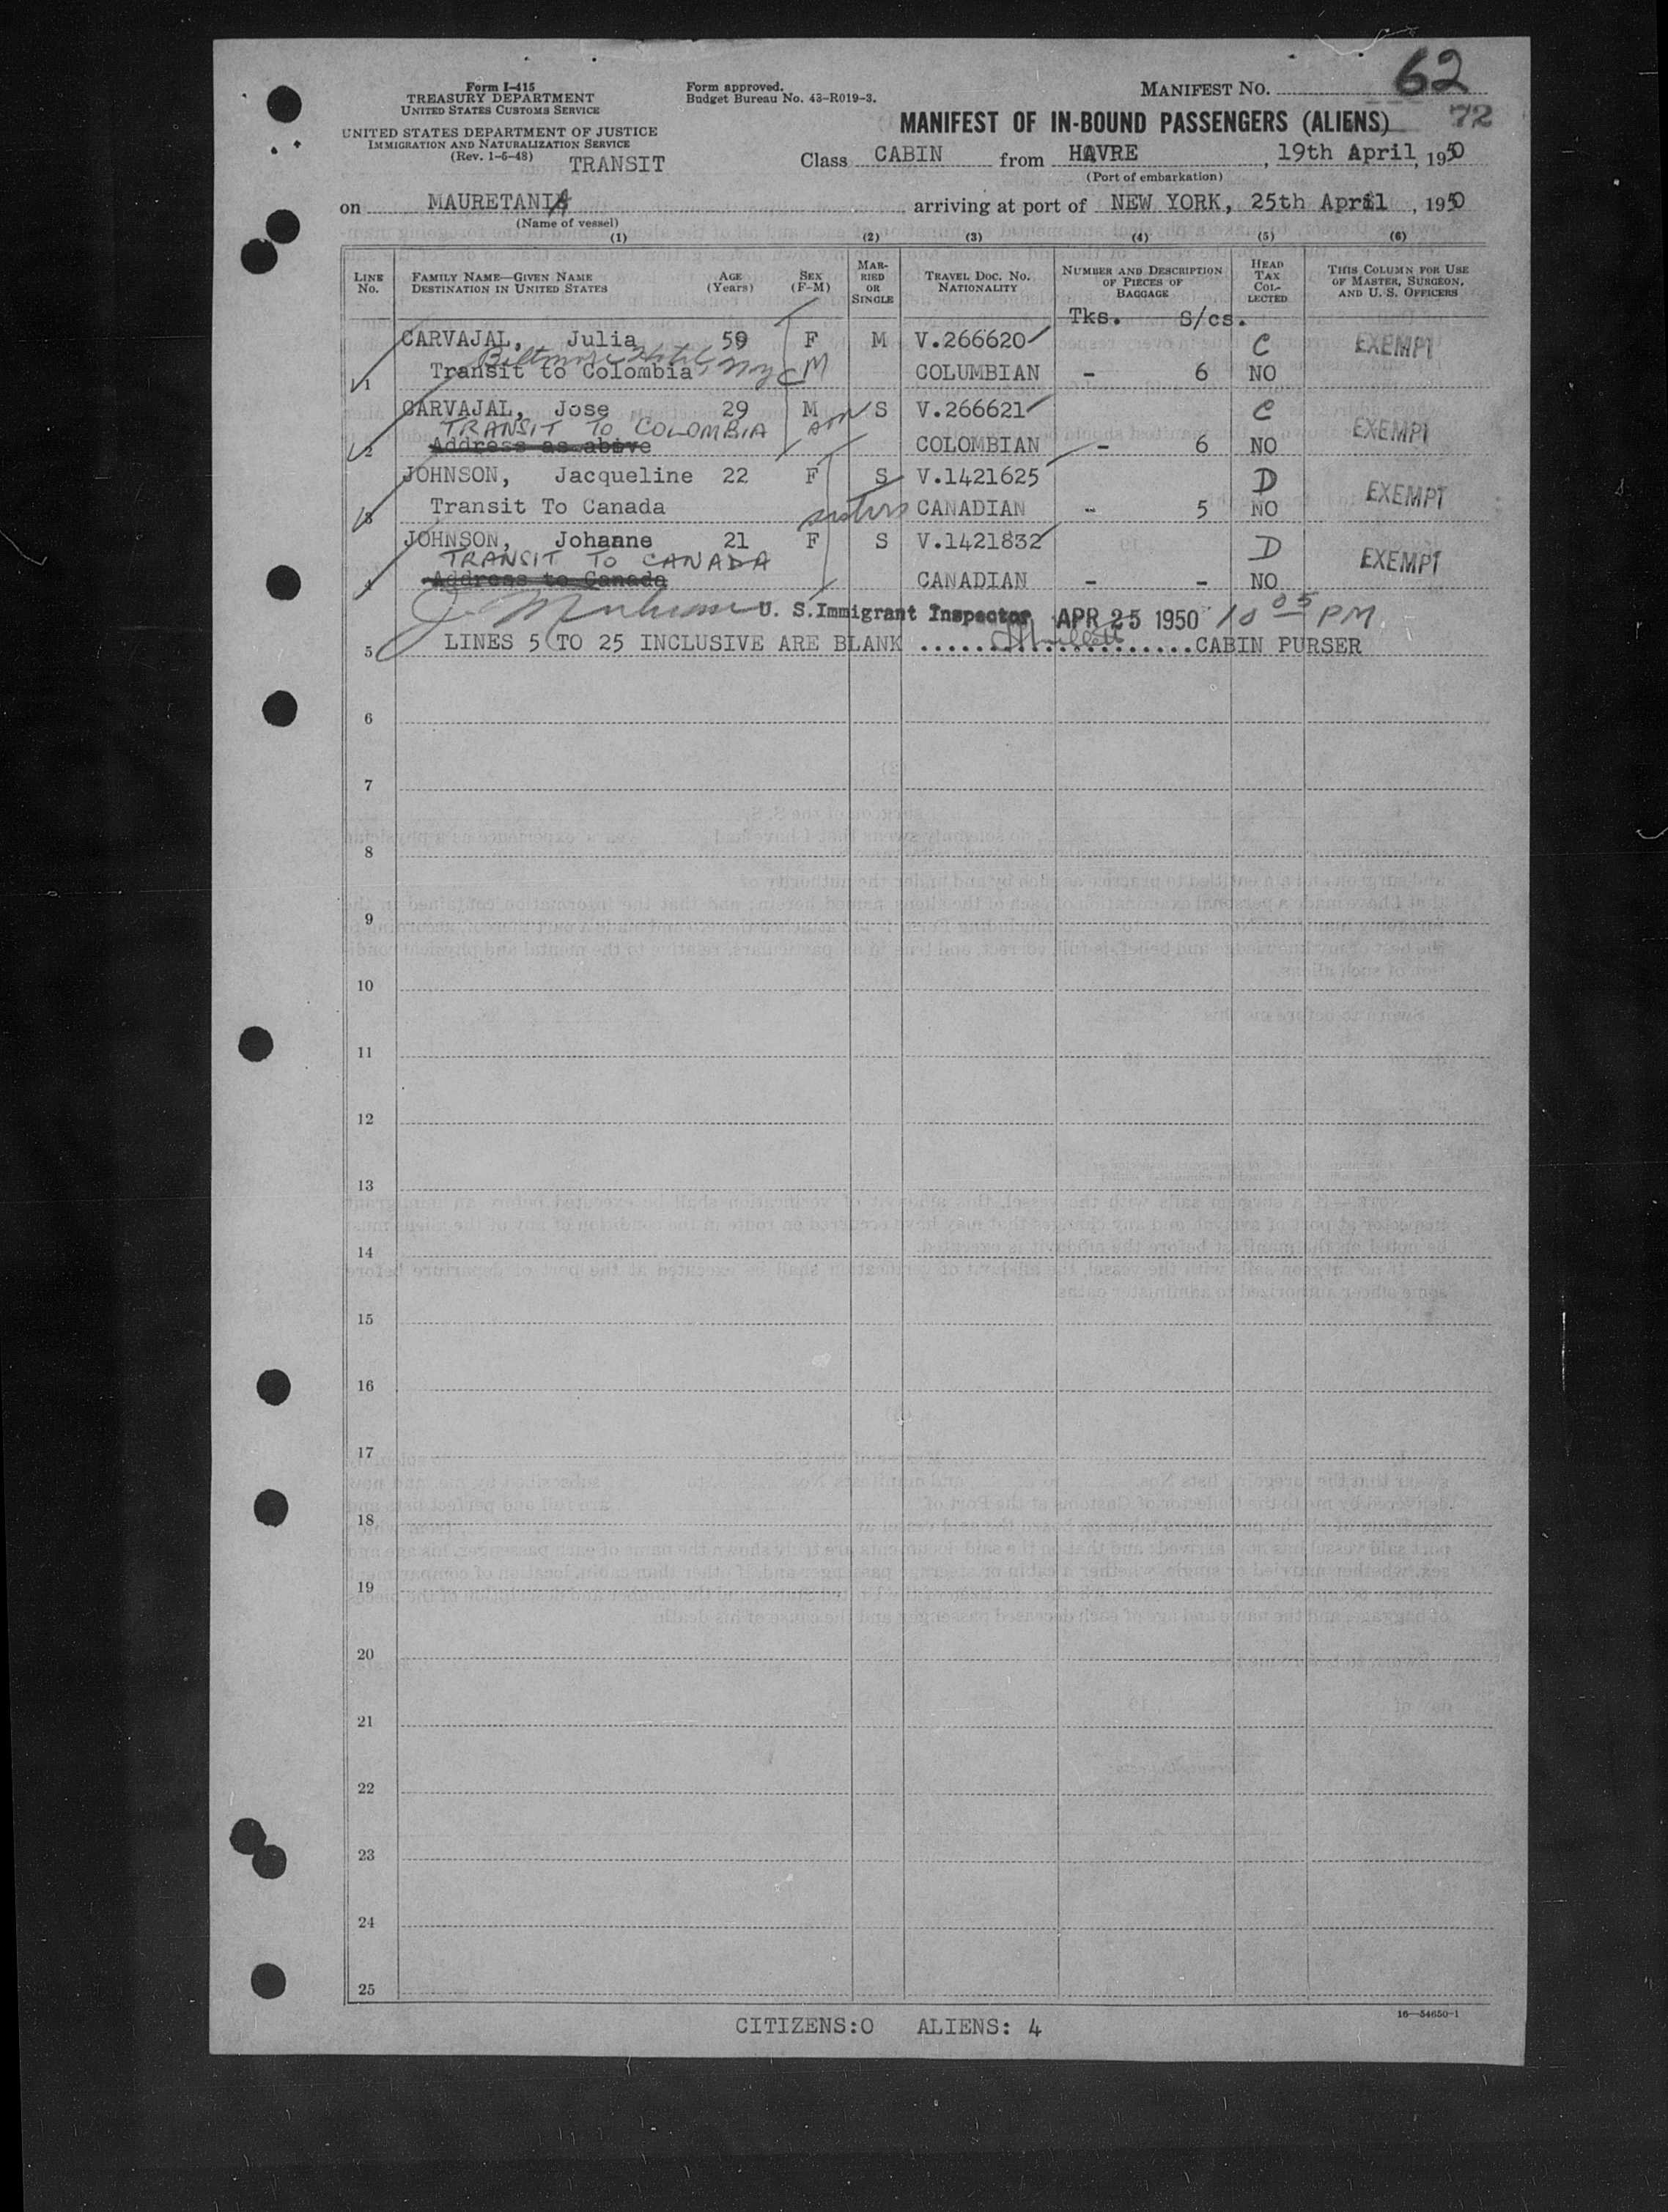 Form I-415
TREASURY DEPARTMENT
UNITED STATES CUSTOMS SERVICE
UNITED STATES DEPARTMENT OF JUSTICE
IMMIGRATION AND NATURALIZATION SERVICE
(Rev. 1-6-48)
TRANSIT
Form approved.
Budget Bureau No. 43-R019-3.
MANIFEST NO. 62
72
MANIFEST OF IN-BOUND PASSENGERS (ALIENS)
Class CABIN from HAVRE, 19th April, 1950
(Port of embarkation)
on MAURETANIA arriving at port of NEW YORK, 25th April, 1950
(Name of vessel)
(1) (2) (3) (4) (5) (6)
LINE No. FAMILY NAME—GIVEN NAME DESTINATION IN UNITED STATES AGE (Years) SEX (F-M) MARRIED OR SINGLE TRAVEL DOC. NO. NATIONALITY NUMBER AND DESCRIPTION OF PIECES OF BAGGAGE HEAD TAX COLLECTED THIS COLUMN FOR USE OF MASTER, SURGEON, AND U. S. OFFICERS
Tks. S/cs.
CARVAJAL, Julia 59 F M V.266620 C EXEMPT
Biltmore Hotel, NYC M
1 Transit to Colombia COLUMBIAN - 6 NO
CARVAJAL, Jose 29 M son S V.266621 C EXEMPT
TRANSIT TO COLOMBIA
2 Address as above COLOMBIAN - 6 NO
JOHNSON, Jacqueline 22 F S V.1421625 D EXEMPT
3 Transit To Canada sisters CANADIAN - 5 NO
JOHNSON, Johanne 21 F S V.1421832 D EXEMPT
TRANSIT TO CANADA
4 Address to Canada CANADIAN - - NO
U. S. Immigrant Inspector APR 25 1950 10 05 PM
5 LINES 5 TO 25 INCLUSIVE ARE BLANK ......................CABIN PURSER
6
7
8
9
10
11
12
13
14
15
16
17
18
19
20
21
22
23
24
25
16—54650-1
CITIZENS:0 ALIENS: 4